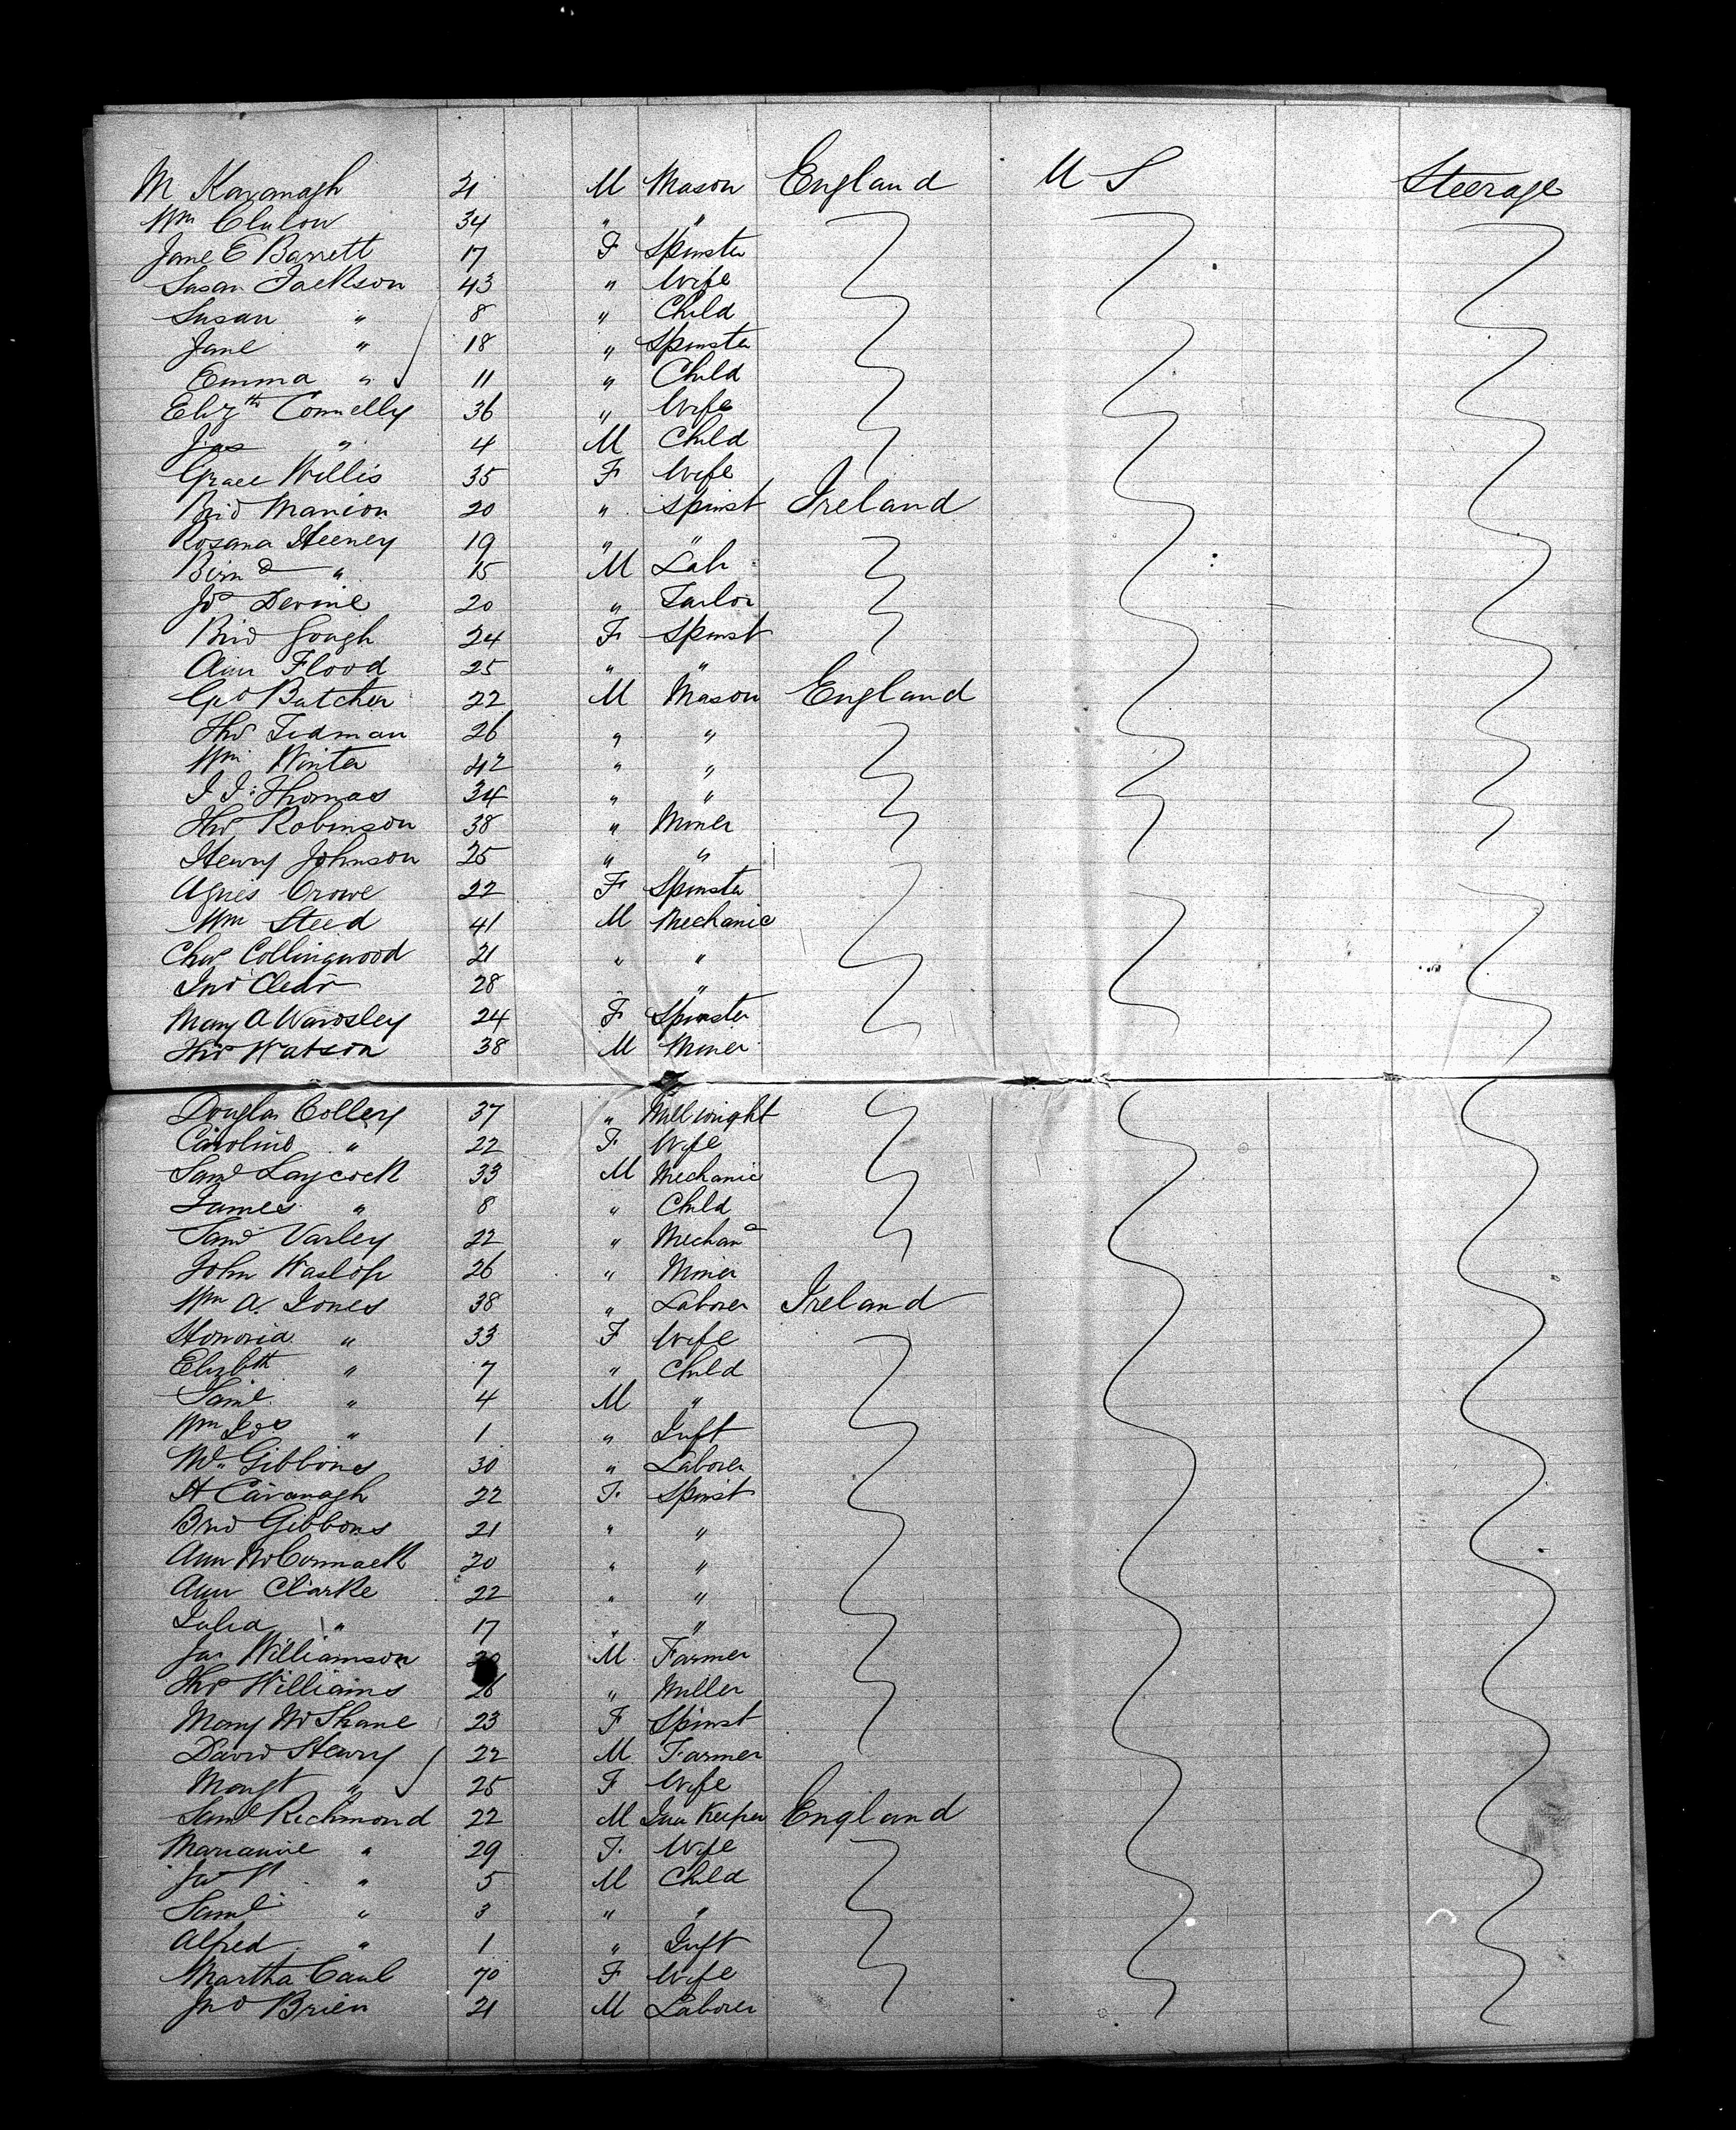 M Kavanagh 21 M Mason England U S Steerage
Wm Clulow 34 " "
Jane E Barrett 17 F Spinster
Susan Jackson 43 " Wife
Susan " 8 " Child
Jane " 18 " Spinster
Emma " 11 " Child
Elizth Connelly 36 " Wife
Jas " 4 M Child
Grace Willis 35 F Wife
Brid Manion 20 " Spinst Ireland
Rosana Heeney 19 " "
Bernd " 15 M Lab
Jos Devine 20 " Tailor
Brid Gough 24 F Spinst
Ann Flood 25 " "
Geo Butcher 22 M Mason England
Thos Tidman 26 " "
Wm Winter 42 " "
J J Thomas 34 " "
Thos Robinson 38 " Miner
Henry Johnson 25 " "
Agnes Crowe 22 F Spinster
Wm Steed 41 M Mechanic
Chas Collingwood 21 " "
Jno Clear 28 " "
Mary A Wardsley 24 F Spinster
Thos Watson 38 M Miner
Douglas Collery 37 " Millwright
Caroline " 22 F Wife
Saml Laycock 33 M Mechanic
James " 8 " Child
Saml Varley 22 " Mechanc
John Haslop 26 " Miner
Wm A. Jones 38 " Laborer Ireland
Honoria " 33 F Wife
Elizbth " 7 " Child
Saml " 4 M "
Wm Jos " 1 " Inft
Gibbons 30 " Laborer
H Cavanagh 22 F Spinst
Brid Gibbons 21 " "
Ann McCormack 20 " "
Ann Clarke 22 " "
Julia " 17 " "
Jas Williamson M Farmer
Thos Williams 26 " Miller
Mary McShane 23 F Spinst
David Henry 22 M Farmer
Margt " 25 F Wife
Saml Richmond 22 M Inn Keeper England
Marianne " 29 F Wife
" 5 M Child
Saml " 3 " "
Alfred " 1 " Inft
Martha Caul 70 F Wife
Jno Brien 21 M Laborer